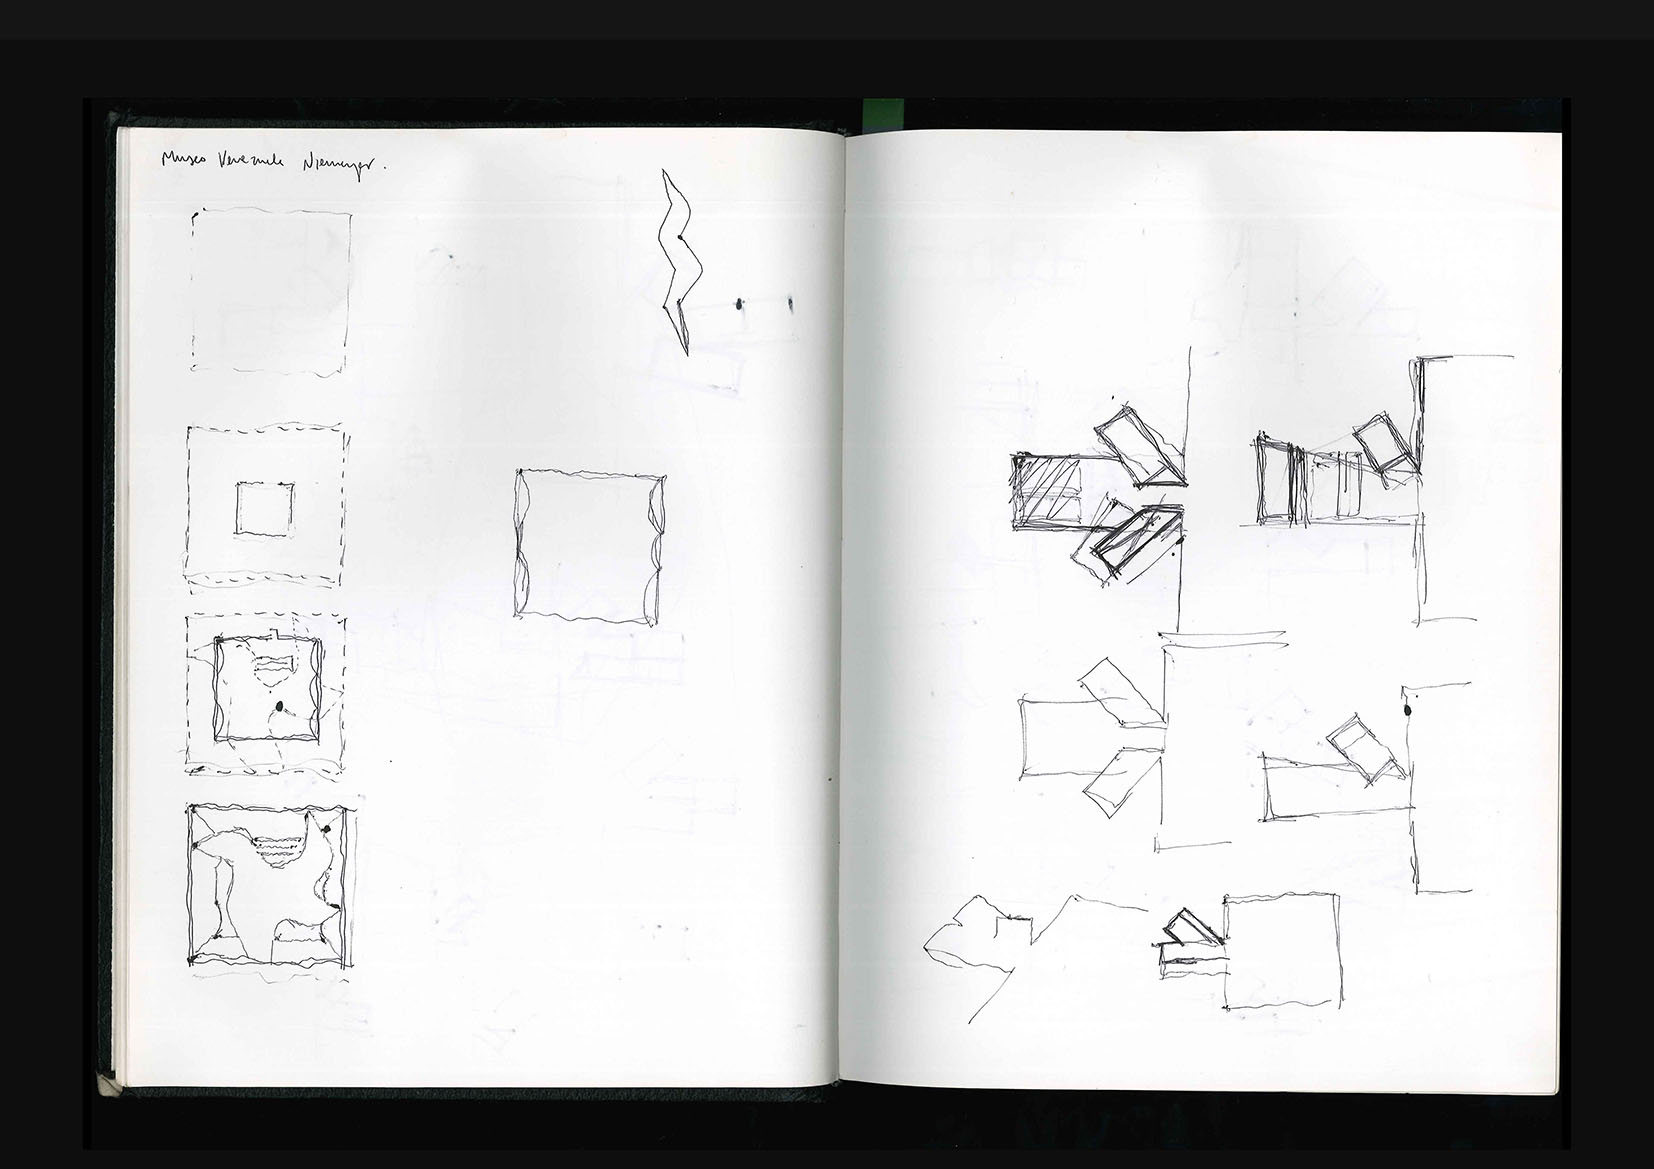 Museo Venezuela Niemeyer.